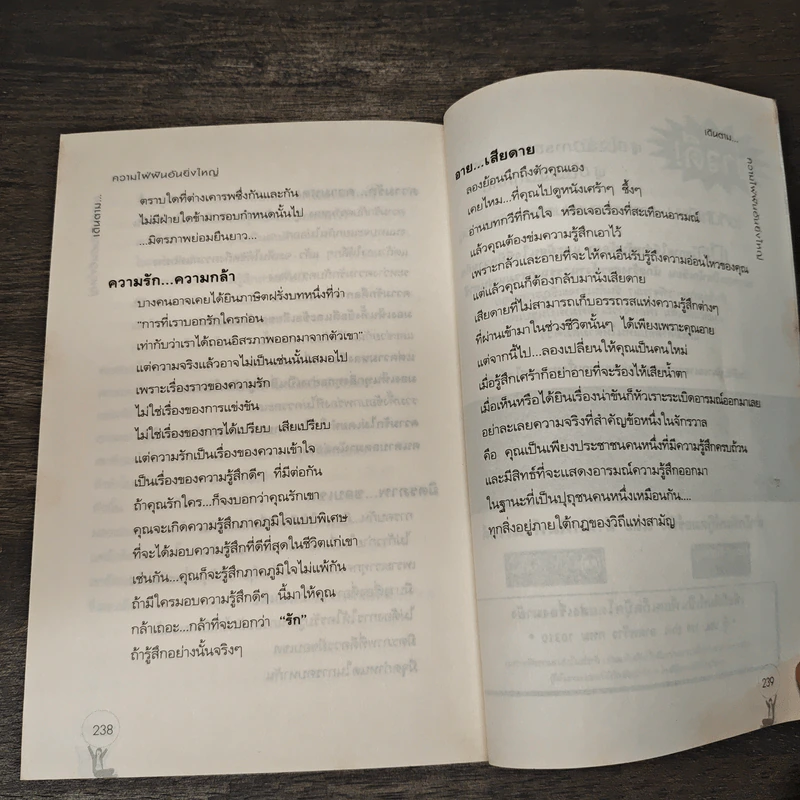 ความใฝ่ฝันอันยิ่งใหญ่
เดินตาม...
ตราบใดที่ต่างเคารพซึ่งกันและกัน
ไม่มีฝ่ายใดข้ามกรอบกำหนดนั้นไป
...มิตรภาพย่อมยืนยาว...
ความรัก...ความกล้า
บางคนอาจเคยได้ยินภาษิตฝรั่งบทหนึ่งที่ว่า
"การที่เราบอกรักใครก่อน
เท่ากับว่าเราได้ถอนอิสรภาพออกมาจากตัวเขา"
แต่ความจริงแล้วอาจไม่เป็นเช่นนั้นเสมอไป
เพราะเรื่องราวของความรัก
ไม่ใช่เรื่องของการแข่งขัน
ไม่ใช่เรื่องของการได้เปรียบ เสียเปรียบ
แต่ความรักเป็นเรื่องของความเข้าใจ
เป็นเรื่องของความรู้สึกดีๆ ที่มีต่อกัน
ถ้าคุณรักใคร...ก็จงบอกว่าคุณรักเขา
คุณจะเกิดความรู้สึกภาคภูมิใจแบบพิเศษ
ที่จะได้มอบความรู้สึกที่ดีที่สุดในชีวิตแก่เขา
เช่นกัน...คุณก็จะรู้สึกภาคภูมิใจไม่แพ้กัน
ถ้ามีใครมอบความรู้สึกดีๆ นี้มาให้คุณ
กล้าเถอะ...กล้าที่จะบอกว่า "รัก"
ถ้ารู้สึกอย่างนั้นจริงๆ
238
เดินตาม...
ความใฝ่ฝันอันยิ่งใหญ่
อาย...เสียดาย
ลองย้อนนึกถึงตัวคุณเอง
เคยไหม...ที่คุณไปดูหนังเศร้าๆ ซึ้งๆ
อ่านบทกวีที่กินใจ หรือเจอเรื่องที่สะเทือนอารมณ์
แล้วคุณต้องข่มความรู้สึกเอาไว้
เพราะกลัวและอายที่จะให้คนอื่นรับรู้ถึงความอ่อนไหวของคุณ
แต่แล้วคุณก็ต้องกลับมานั่งเสียดาย
เสียดายที่ไม่สามารถเก็บอรรถรสแห่งความรู้สึกต่างๆ
ที่ผ่านเข้ามาในช่วงชีวิตนั้นๆ ได้เพียงเพราะคุณอาย
แต่จากนี้ไป...ลองเปลี่ยนให้คุณเป็นคนใหม่
เมื่อรู้สึกเศร้าก็อย่าอายที่จะร้องไห้เสียน้ำตา
เมื่อเห็นหรือได้ยินเรื่องน่าขันก็หัวเราะระเบิดอารมณ์ออกมาเลย
อย่าละเลยความจริงที่สำคัญข้อหนึ่งในจักรวาล
คือ คุณเป็นเพียงประชาชนคนหนึ่งที่มีความรู้สึกครบถ้วน
และมีสิทธ์ที่จะแสดงอารมณ์ความรู้สึกออกมา
ในฐานะที่เป็นปุถุชนคนหนึ่งเหมือนกัน....
ทุกสิ่งอยู่ภายใต้กฎของวิถีแห่งสามัญ
239